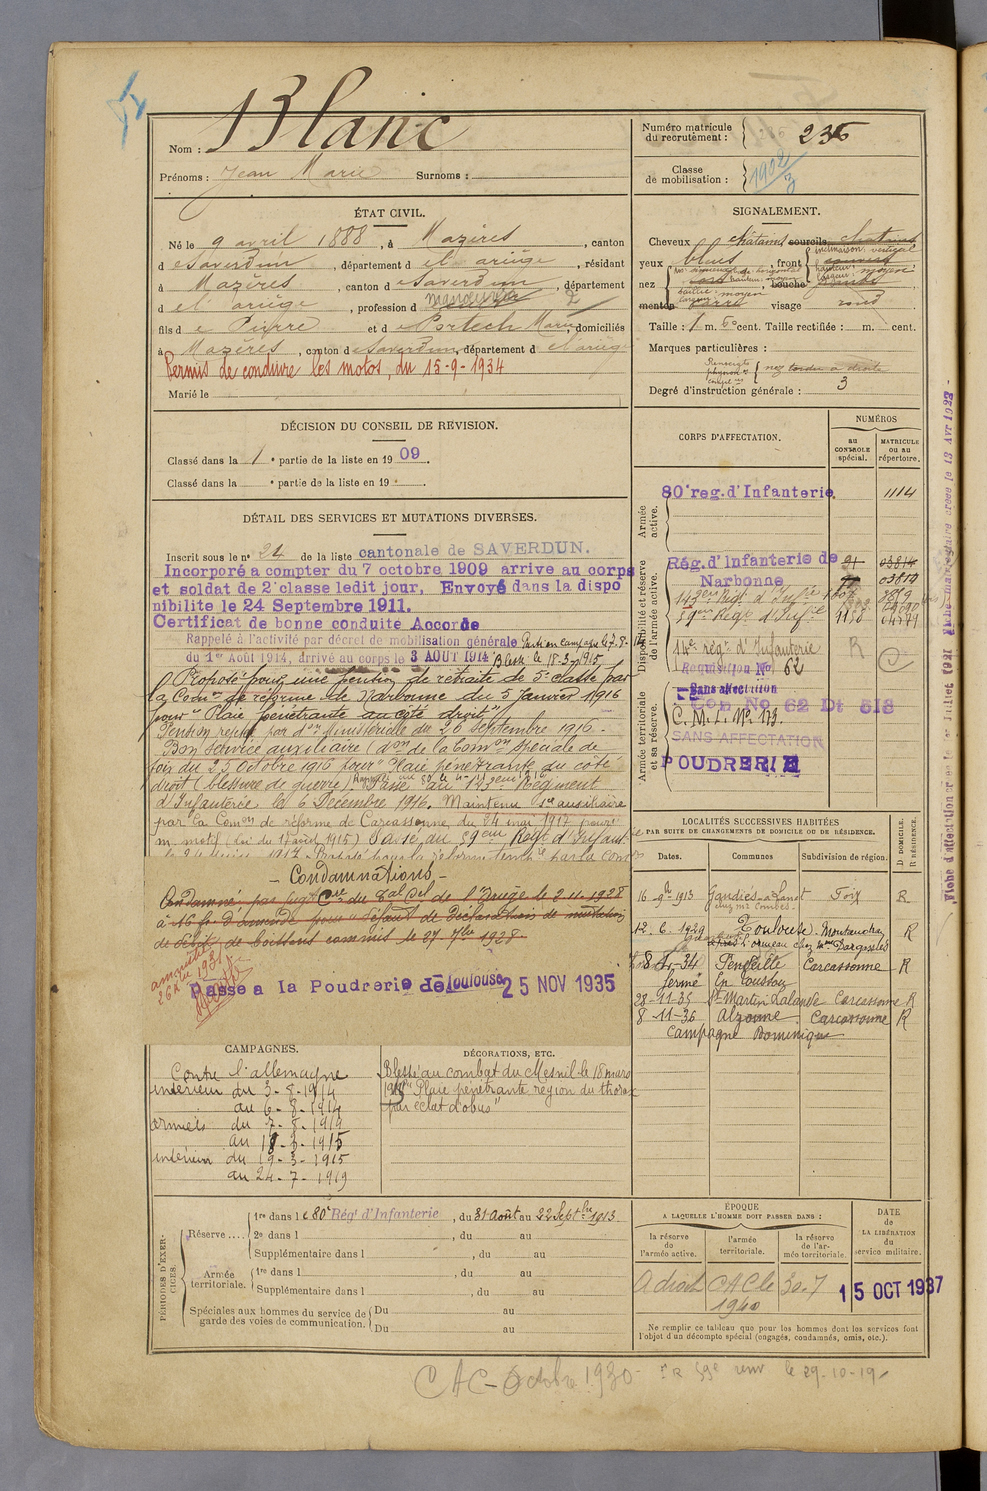 Nom : Blanc
Prénoms : Jean Marie Surnoms :
Numéro matricule
du recrutement : 236
Classe
de mobilisation : 1902/3
ÉTAT CIVIL.
Né le 9 avril 1888, à Mazères, canton
d e Saverdun, département d el ariège, résidant
à Mazères, canton d e Saverdun, département
d el ariège, profession d manœuvre 2
fils d e Pierre et d e Portech Marie, domiciliés
à Mazères, canton d e Saverdun, département d el ariège
Permis de conduire les motos, du 15-9-1934
Marié le
SIGNALEMENT.
Cheveux chatains sourcils chatains
yeux bleus, front inclinaison: vertical
hauteur: moyen
largeur: moyen
nez, bouche
menton visage rond
Taille : 1 m. 60 cent. Taille rectifiée : m. cent.
Marques particulières :
Renseigts physion. compl. nez tordu à droite
Degré d'instruction générale : 3
DÉCISION DU CONSEIL DE REVISION.
Classé dans la 1e partie de la liste en 1909.
Classé dans la e partie de la liste en 19
DÉTAIL DES SERVICES ET MUTATIONS DIVERSES.
Inscrit sous le n° 24 de la liste cantonale de SAVERDUN.
Incorporé a compter du 7 octobre 1909 arrive au corps
et soldat de 2e classe ledit jour, Envoyé dans la dispo
nibilite le 24 Septembre 1911.
Certificat de bonne conduite Accordé
Rappelé à l'activité par décret de mobilisation générale Parti en campagne le 7-8-14
du 1er Août 1914, arrivé au corps le 3 AOUT 1914 Blessé le 18-3-1915
Proposé pour une pension de retraite de 5e classe par
la Comon de réforme de Narbonne du 5 Janvier 1916
pour "Plaie pénétrante au côté droit"
Pension refusée par don Ministérielle du 26 septembre 1916.
Bon service auxiliaire (don de la Comon spéciale de
foix du 25 octobre 1916 pour "Plaie pénétrante du côté
droit (blessure de guerre) Passé au 143eme Régiment
d'Infanterie le 6 Décembre 1916. Maintenu sce auxiliaire
par la Comon de réforme de Carcassonne du 24 mai 1917 pour
m. motif (Loi du 17 août 1915) Passé au 59eme Regt d'Infanterie
- Condamnations -
Condamné par jugt Cve du Bal Pol de l'Ariège le 2-11-1928
à 16 fr. d'amende pour "Défaut de Déclaration de mutation
de débit de boissons commis le 27 7bre 1928.
Passe a la Poudrerie de Toulouse 25 NOV 1935
CORPS D'AFFECTATION.
NUMÉROS
au
CONTROLE
spécial.
MATRICULE
ou au
répertoire.
Armée
active.
80e reg. d'Infanterie 1114
Disponibilité et réserve
de l'armée active.
Rég. d'Infanterie de 91 03814
Narbonne 03819
143eme Régt d'Infie
59eme Régt d'Infie 1150
14e régt d'Infanterie R
Requisition No 62
Armée territoriale
et sa réserve.
Sans affectation
Con No 62 Dt 518
C. M. L. No 173.
SANS AFFECTATION
POUDRERIE
LOCALITÉS SUCCESSIVES HABITÉES
PAR SUITE DE CHANGEMENTS DE DOMICILE OU DE RÉSIDENCE.
D DOMICILE.
R RÉSIDENCE.
Dates. Communes Subdivision de région.
16-9-1913 Gaudiès-a-Zanot Foix R.
chez Mr Combes.
12-6-1929 Toulouse Montauban R
Lormeau chez Mme Dargassies
8-34 Pendeille Carcassonne R
ferme En Toussou
28-11-35 St-Martin Lalande Carcassonne R
8-11-36 Alzonne Carcassonne R
Campagne Dominique
CAMPAGNES.
Contre l'allemagne
intérieur du 3-8-1914
au 6-8-1914
armées du 7-8-1914
au 18-3-1915
intérieur du 19-3-1915
au 24-7-1919
DÉCORATIONS, ETC.
Blessé au combat du Mesnil le 18 mars
1915 "Plaie pénétrante région du thorax
par éclat d'obus"
PÉRIODES D'EXERCICES.
Réserve.... 1re dans l e 80e Régt d'Infanterie, du 31 Août au 22 Septbre 1913.
2e dans l , du au
Supplémentaire dans l , du au
Armée
territoriale. 1re dans l , du au
Supplémentaire dans l , du au
Spéciales aux hommes du service de
garde des voies de communication. Du au
Du au
ÉPOQUE
A LAQUELLE L'HOMME DOIT PASSER DANS :
la réserve
de
l'armée active.
l'armée
territoriale.
la réserve
de l'ar-
mée territoriale.
DATE
de
LA LIBÉRATION
du
service militaire.
A droit CAC le 30.7
1940
15 OCT 1937
Ne remplir ce tableau que pour les hommes dont les services font
l'objet d'un décompte spécial (engagés, condamnés, omis, etc.).
CAC - Octobre 1930